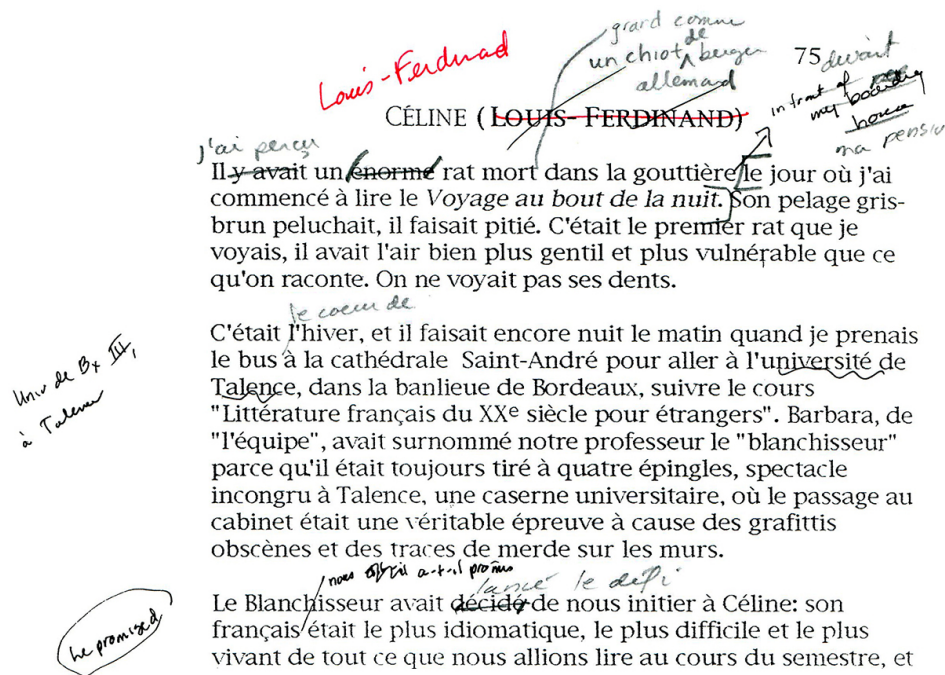 grand comme
un chiot de berger
allemand
75
devant
Louis-Ferdinad
in front of
my boarding
house
ma pension
CÉLINE (LOUIS-FERDINAND)
j'ai perçu
Il y avait un énorme rat mort dans la gouttière le jour où j'ai
commencé à lire le Voyage au bout de la nuit. Son pelage gris-
brun peluchait, il faisait pitié. C'était le premier rat que je
voyais, il avait l'air bien plus gentil et plus vulnérable que ce
qu'on raconte. On ne voyait pas ses dents.
le coeur de
C'était l'hiver, et il faisait encore nuit le matin quand je prenais
le bus à la cathédrale Saint-André pour aller à l'université de
Talence, dans la banlieue de Bordeaux, suivre le cours
"Littérature français du XXe siècle pour étrangers". Barbara, de
"l'équipe", avait surnommé notre professeur le "blanchisseur"
parce qu'il était toujours tiré à quatre épingles, spectacle
incongru à Talence, une caserne universitaire, où le passage au
cabinet était une véritable épreuve à cause des grafittis
obscènes et des traces de merde sur les murs.
Univ de Bx III,
à Talence
nous a-t-il promis
lancé le défi
Le Blanchisseur avait décidé de nous initier à Céline: son
français était le plus idiomatique, le plus difficile et le plus
vivant de tout ce que nous allions lire au cours du semestre, et
he promised